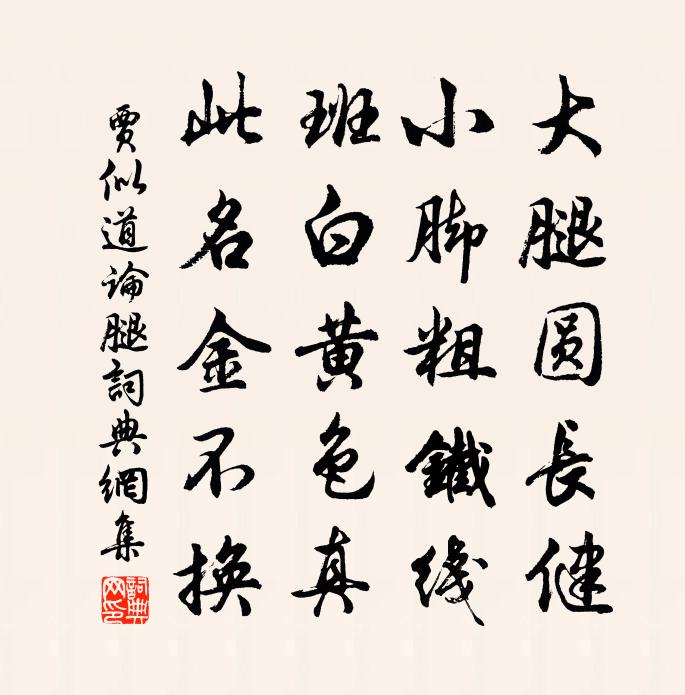 大腿圆長健
小脚粗鐵线
班白黄色真
此名金不換
賈似道論腿詞典網集
詞典網印